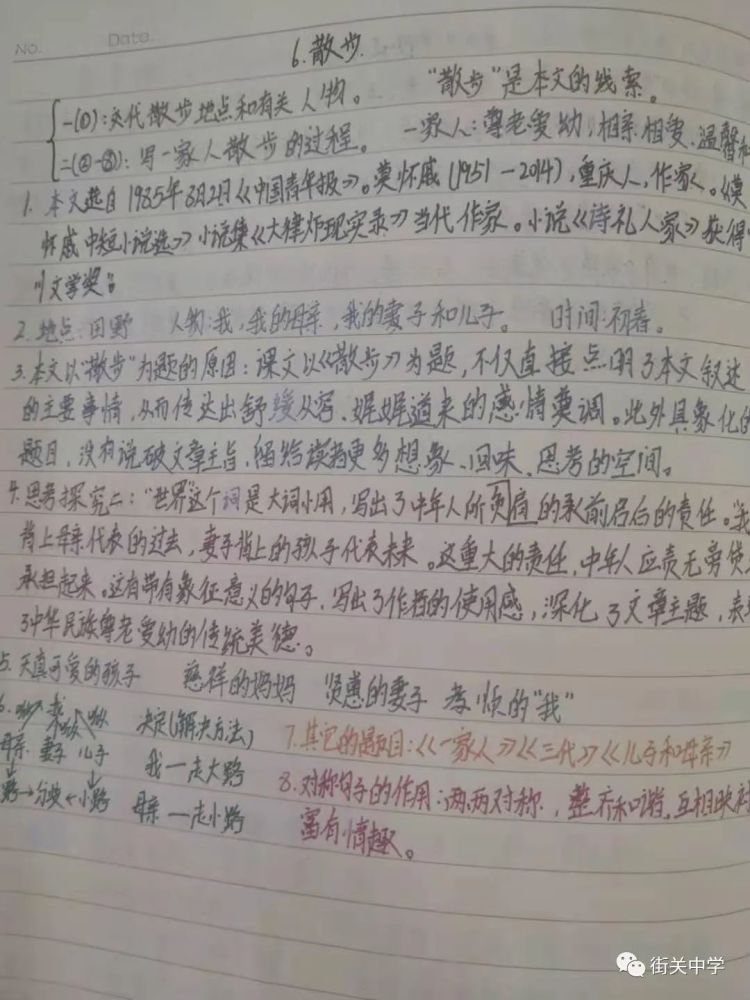 No. Date.
6.散步.
"散步"是本文的线索。
一(①):交代散步地点和有关人物。
二(②-⑧):写一家人散步的过程。 一家人:尊老爱幼,相亲相爱、温馨和
1. 本文选自1985年8月2日《中国青年报》。莫怀戚(1951-2014),重庆人,作家。《莫
怀戚中短小说选》小说集《大律师现实录》当代作家。小说《诗礼人家》获得
川文学奖。
2. 地点:田野 人物:我,我的母亲,我的妻子和儿子。 时间:初春。
3.本文以"散步"为题的原因:课文以《散步》为题,不仅直接点明了本文叙述
的主要事情,从而传达出舒缓从容、娓娓道来的感情莫调。此外具象化的
题目,没有说破文章主旨,留给读者更多想象、回味、思考的空间。
4.思考探究二:"世界"这个词是大词小用,写出了中年人所负肩的承前启后的责任。"我
背上母亲代表的过去,妻子背上的孩子代表未来。这重大的责任,中年人应责无旁贷
承担起来。这有带有象征意义的句子,写出了作者的使用感,深化了文章主题,表
了中华民族尊老爱幼的传统美德。
5.天真可爱的孩子 慈祥的妈妈 贤惠的妻子 孝顺的"我"
6. 我 决定(解决方法)
母亲 妻子 儿子 我一走大路
路→分歧←小路 母亲一走小路
7.其它的题目:《一家人》《三代》《儿子和母亲》
8.对称句子的作用:两两对称,整齐和谐.互相映衬
富有情趣。
街关中学